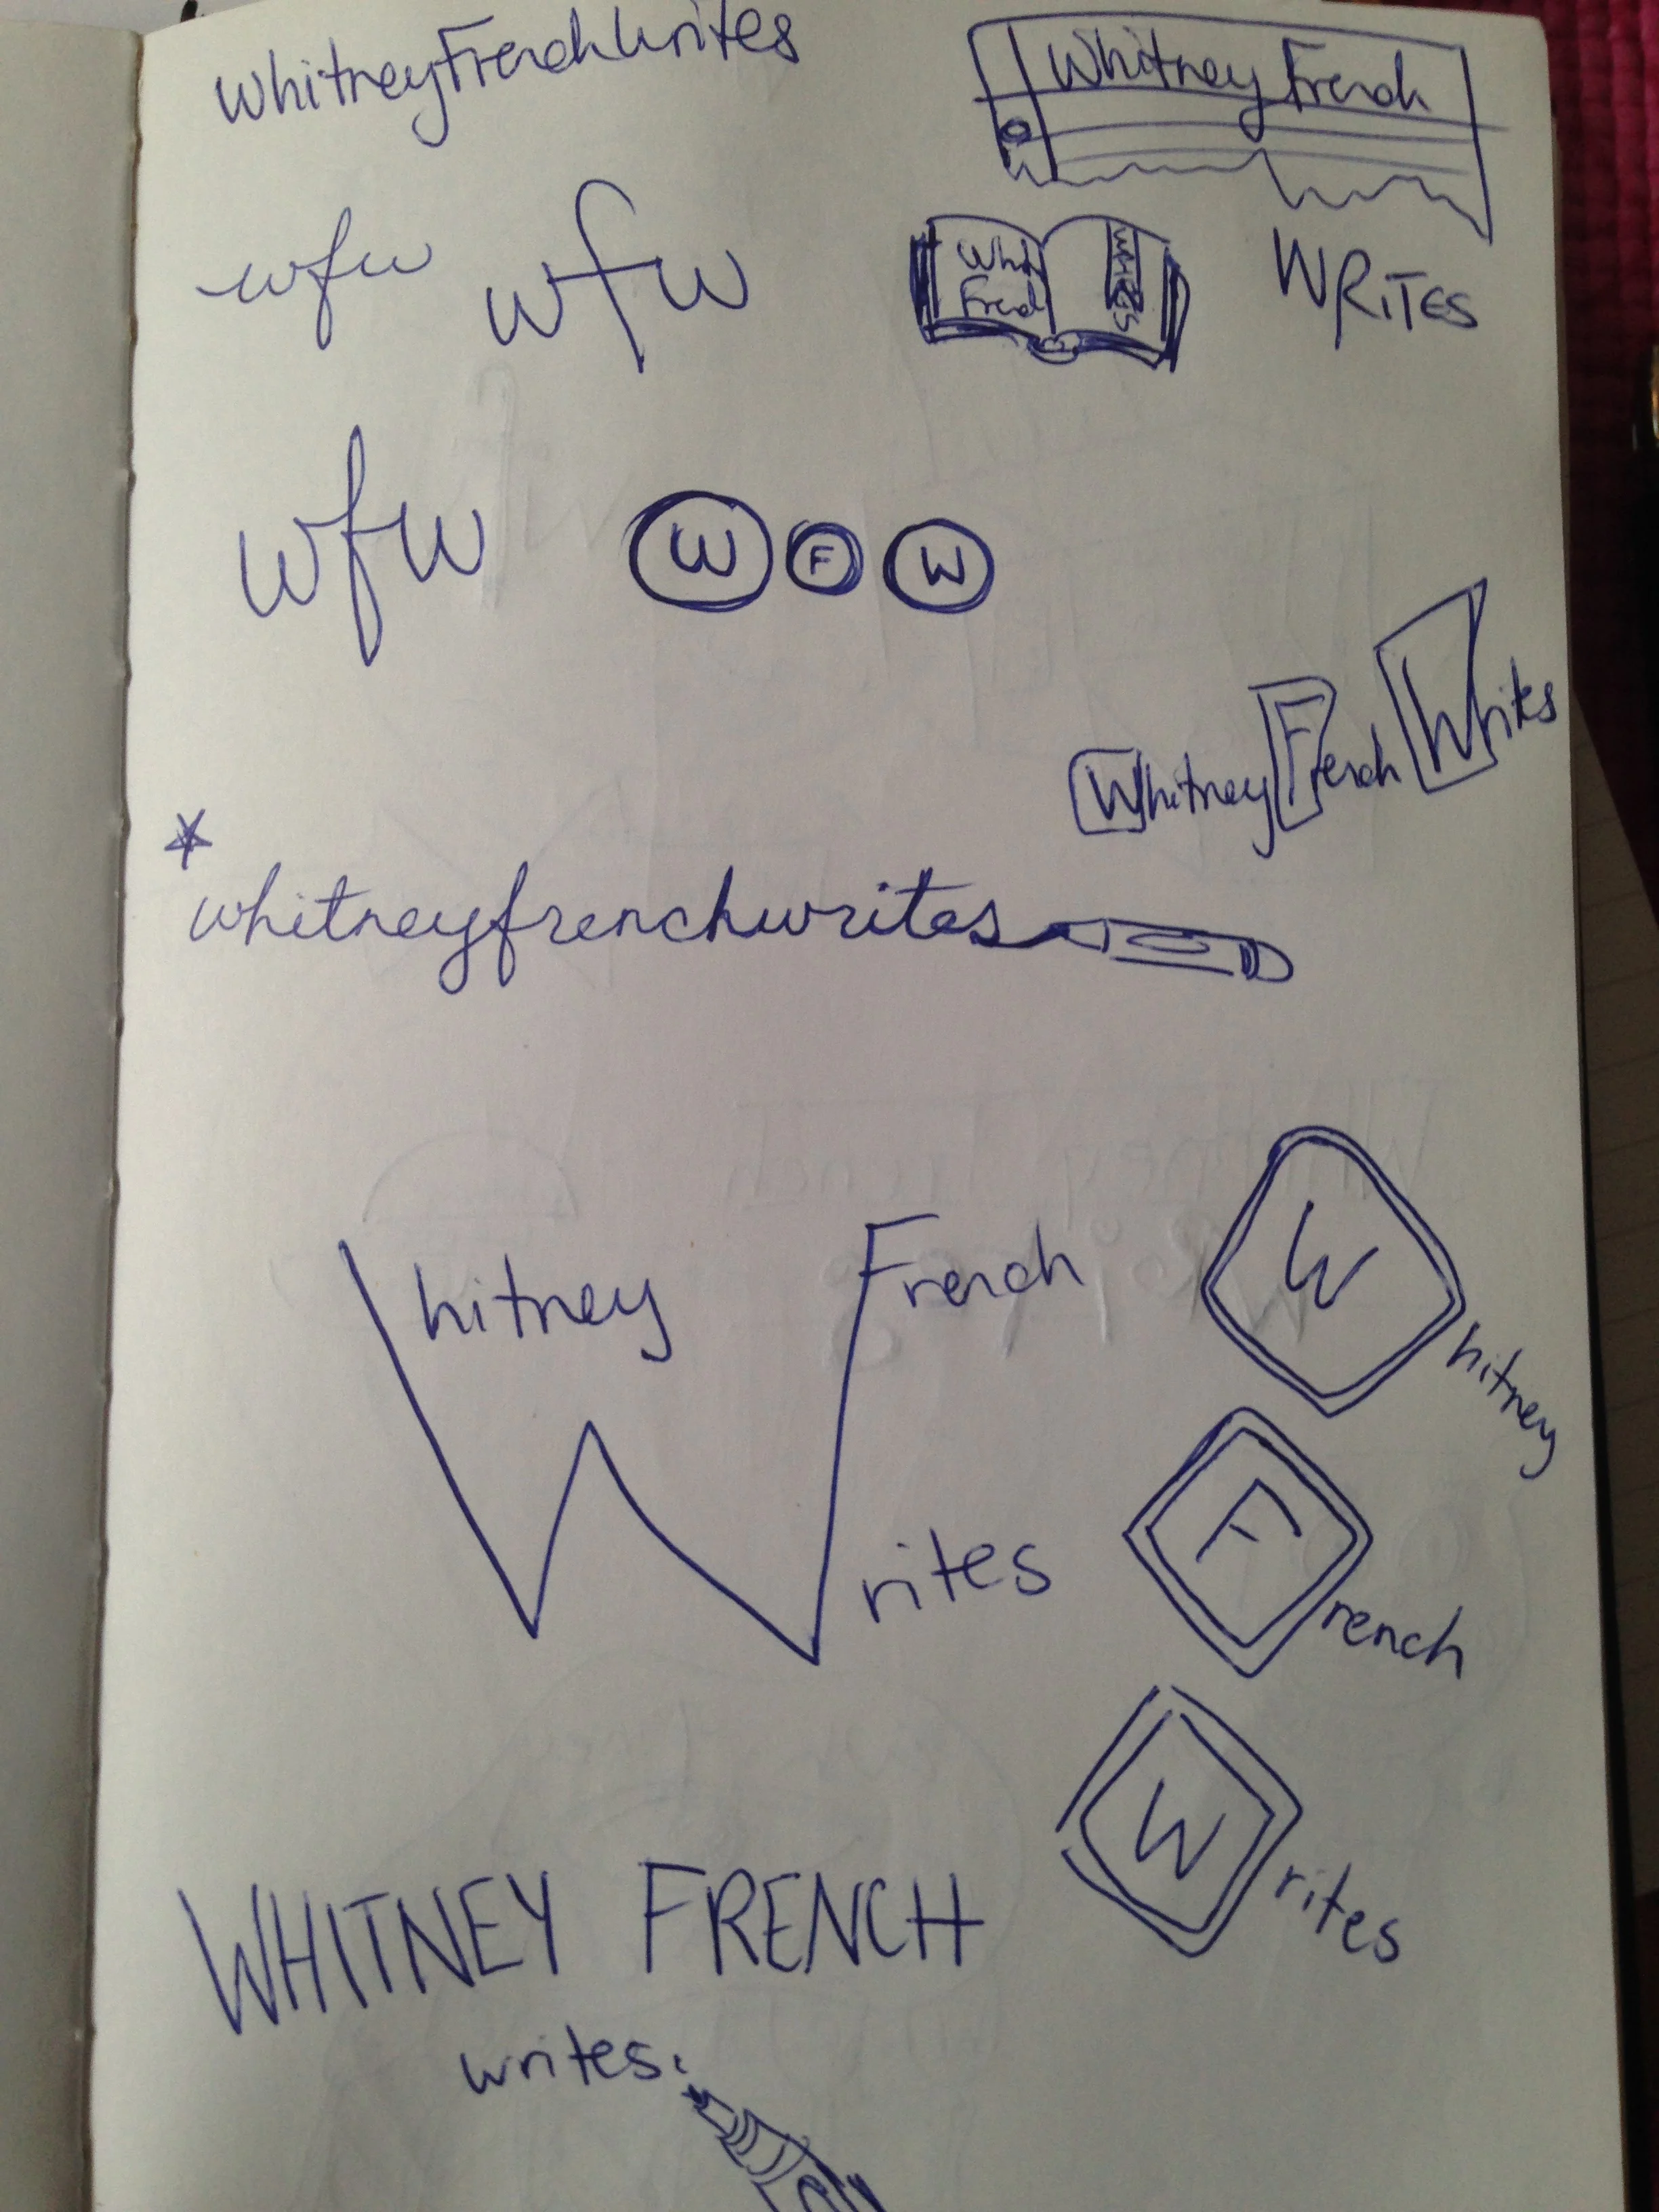 WhitneyFrenchWrites
Whitney French
WRITES
wfw
wfw
Whit
French
WRITES
wfw
W F W
Whitney French Writes
whitneyfrenchwrites
Whitney French
Writes
Whitney
French
Writes
WHITNEY FRENCH
writes.